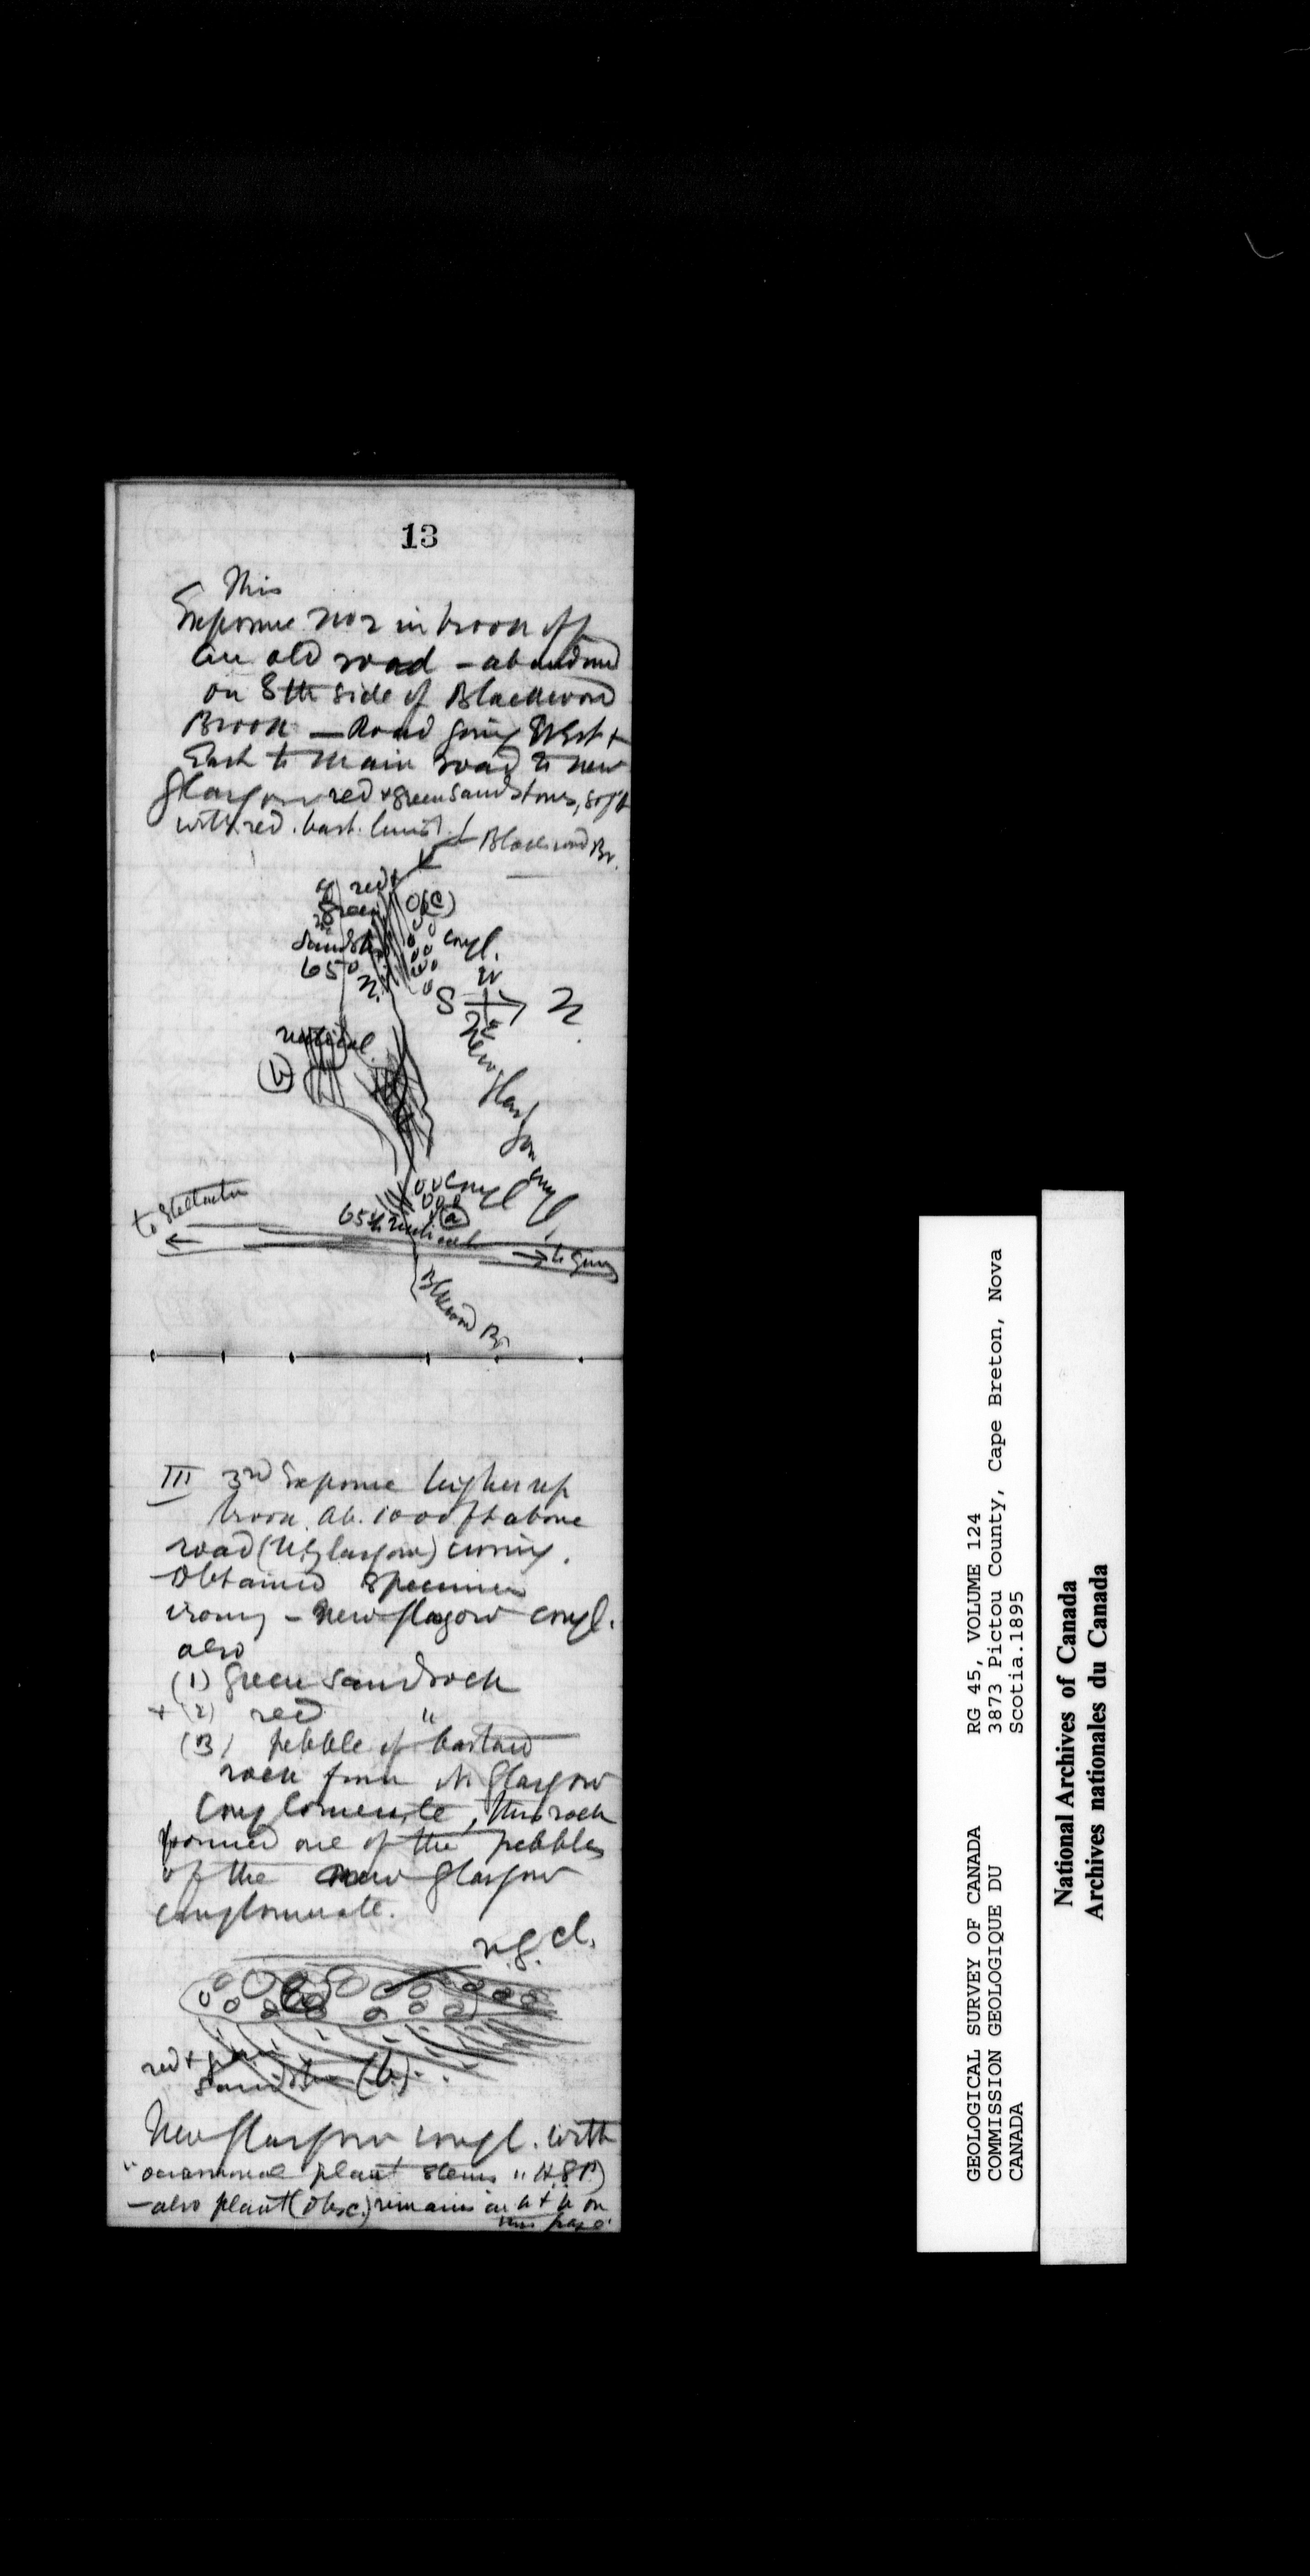 13
This
Exposure No 2 in brook off
an old road - abandoned
on Sth side of Blackwood
Brook — Road going West +
East to Main road to New
Glasgow red + green sandstones, soft
with red.
Blackwood Br.
red +
green
(c)
Sandst.
65°
N.
congl.
W
S N
E
vertical.
(b)
New Glasgow congl.
congl
(a)
65°
to Stellarton
to
Blkwood Br
III 3rd Exposure higher up
brook ab. 1000 ft above
road (N. Glasgow)
Obtained specimen
irony - New Glasgow congl.
also
(1) green sandrock
+ (2) red "
(3) pebble of bastard
rock from N. Glasgow
Conglomerate, this rock
formed one of the pebbles
of the New Glasgow
conglomerate.
N.G. cl.
red + green
sandstone (b).
New Glasgow congl. with
"occasional plant stems" H.S.P.)
- also plant (obsc.) remains in on
this page
GEOLOGICAL SURVEY OF CANADA RG 45, VOLUME 124
COMMISSION GEOLOGIQUE DU 3873 Pictou County, Cape Breton, Nova
CANADA Scotia.1895
National Archives of Canada
Archives nationales du Canada